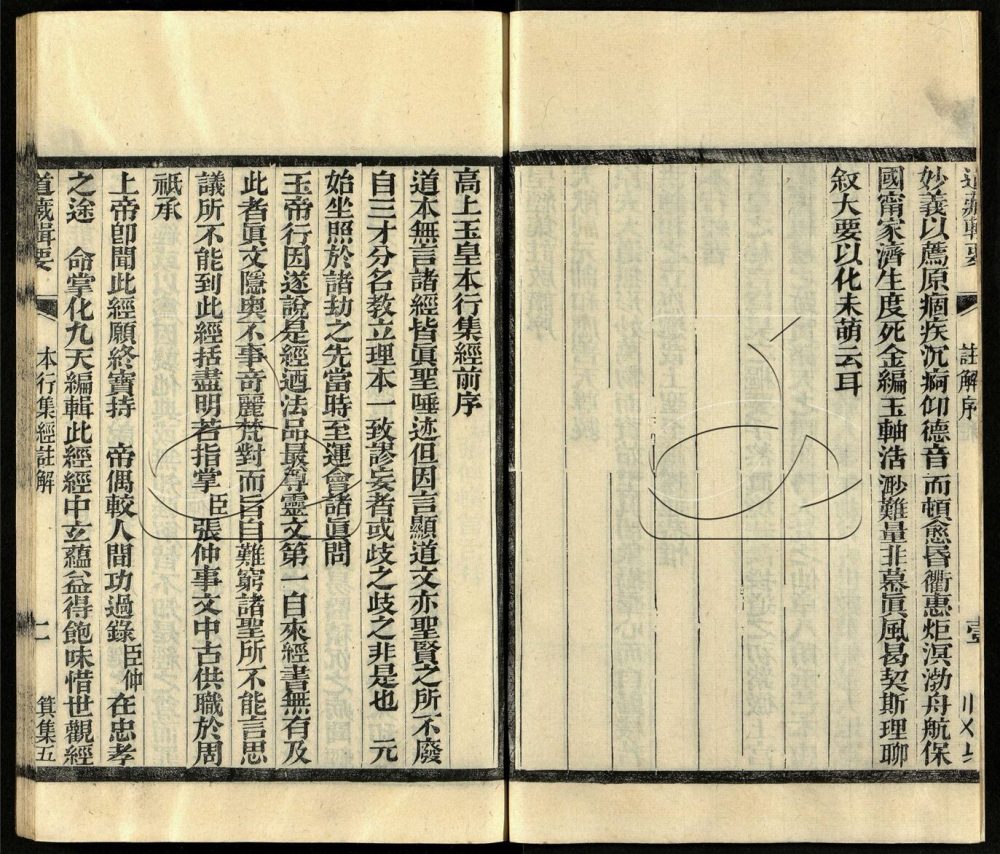 道藏輯要 註解序
妙義以薦原痼疾沉痾仰德音而頓愈昏衢惠炬溟渤舟航保
國甯家濟生度死金編玉軸浩渺難量非慕眞風曷契斯理聊
敘大要以化未萌云耳
高上玉皇本行集經前序
道本無言諸經皆眞聖唾迹但因言顯道文亦聖賢之所不廢
自三才分名教立理本一致謬妄者或歧之歧之非是也 元
始坐照於諸劫之先當時至運會諸眞問
玉帝行因遂說是經迺法品最尊靈文第一自來經書無有及
此者眞文隱奥不事奇麗梵對而旨自難窮諸聖所不能言思
議所不能到此經括盡明若指掌臣張仲事文中古供職於周
祇承
上帝卽聞此經願終寶持 帝偶較人間功過錄臣仲在忠孝
之途 命掌化九天編輯此經經中玄蘊益得飽味惜世觀經
道藏輯要 本行集經註解 二 箕集五